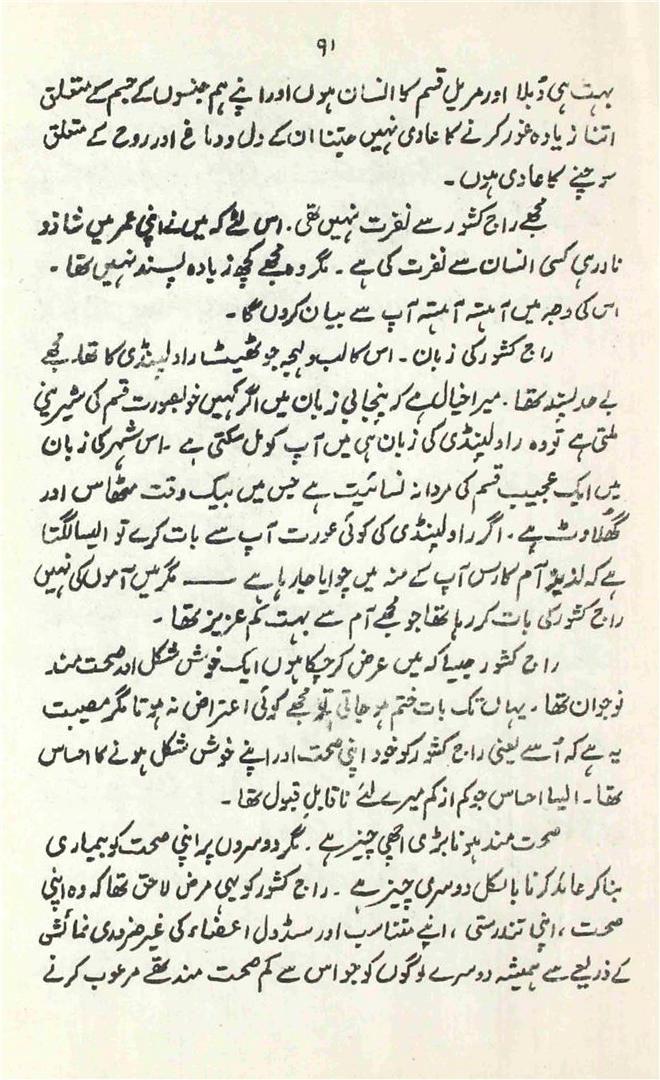 ۹۱
بہت ہی دُبلا اور مریل قسم کا انسان ہوں اور اپنے ہم جنسوں کے جسم کے متعلق
اتنا زیادہ غور کرنے کا عادی نہیں جتنا ان کے دل و دماغ اور روح کے متعلق
سوچنے کا عادی ہوں۔
مجھے راج کشور سے نفرت نہیں تھی۔ اس لئے کہ میں نے اپنی عمر میں شاذ و
نادر ہی کسی انسان سے نفرت کی ہے۔ مگر وہ مجھے کچھ زیادہ پسند نہیں تھا۔
اس کی وجہ میں آہستہ آہستہ آپ سے بیان کروں گا۔
راج کشور کی زبان۔ اس کا لب و لہجہ جو ٹھیٹ راولپنڈی کا تھا۔ مجھے
بے حد پسند تھا۔ میرا خیال ہے کہ پنجابی زبان میں اگر کہیں خوبصورت قسم کی شیرینی
ملتی ہے تو وہ راولپنڈی کی زبان ہی میں آپ کو مل سکتی ہے۔ اس شہر کی زبان
میں ایک عجیب قسم کی مردانہ نسائیت ہے جس میں بیک وقت مٹھاس اور
گھُلاوٹ ہے۔ اگر راولپنڈی کی کوئی عورت آپ سے بات کرے تو ایسا لگتا
ہے کہ لذیذ آم کا رس آپ کے منہ میں چوایا جا رہا ہے ــــــ مگر میں آموں کی نہیں
راج کشور کی بات کر رہا تھا جو مجھے آم سے بہت کم عزیز تھا۔
راج کشور جیسا کہ میں عرض کر چکا ہوں ایک خوش شکل اور صحت مند
نوجوان تھا۔ یہاں تک بات ختم ہو جاتی تو مجھے کوئی اعتراض نہ ہوتا مگر مصیبت
یہ ہے کہ اُسے یعنی راج کشور کو خود اپنی صحت اور اپنے خوش شکل ہونے کا احساس
تھا۔ ایسا احساس جو کم از کم میرے لئے ناقابلِ قبول تھا۔
صحت مند ہونا بڑی اچھی چیز ہے۔ مگر دوسروں پر اپنی صحت کو بیماری
بنا کر عائد کرنا بالکل دوسری چیز ہے۔ راج کشور کو یہی مرض لاحق تھا کہ وہ اپنی
صحت، اپنی تندرستی، اپنے متناسب اور سڈول اعضاء کی غیر ضروری نمائش
کے ذریعے سے ہمیشہ دوسرے لوگوں کو جو اس سے کم صحت مند تھے مرعوب کرنے